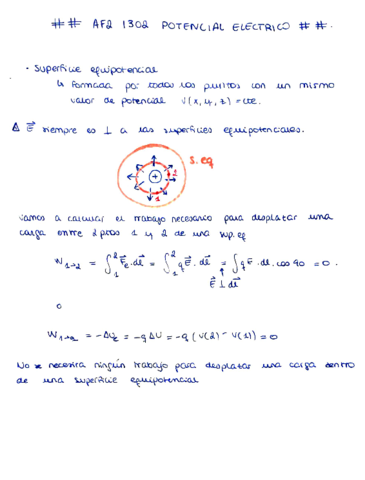 ## AF2 1302 POTENCIAL ELECTRICO ##.
· Superficie equipotencial
↳ Formada por todos los puntos con un mismo
valor de potencial V(x, y, z) = cte.
Δ E⃗ siempre es ⊥ a las superficies equipotenciales.
S. eq
1
+
1
vamos a calcular el trabajo necesario para desplazar una
carga entre 2 ptos 1 y 2 de una sup. eq
W₁→₂ = ∫₁² F⃗e · dl⃗ = ∫₁² qE⃗ · dl⃗ = ∫ qE · dl · cos 90 = 0.
E⃗ ⊥ dl⃗
o
W₁→₂ = -ΔU = -qΔU = -q (V(2) - V(1)) = 0
No se necesita ningún trabajo para desplatar una carga dentro
de una superficie equipotencial